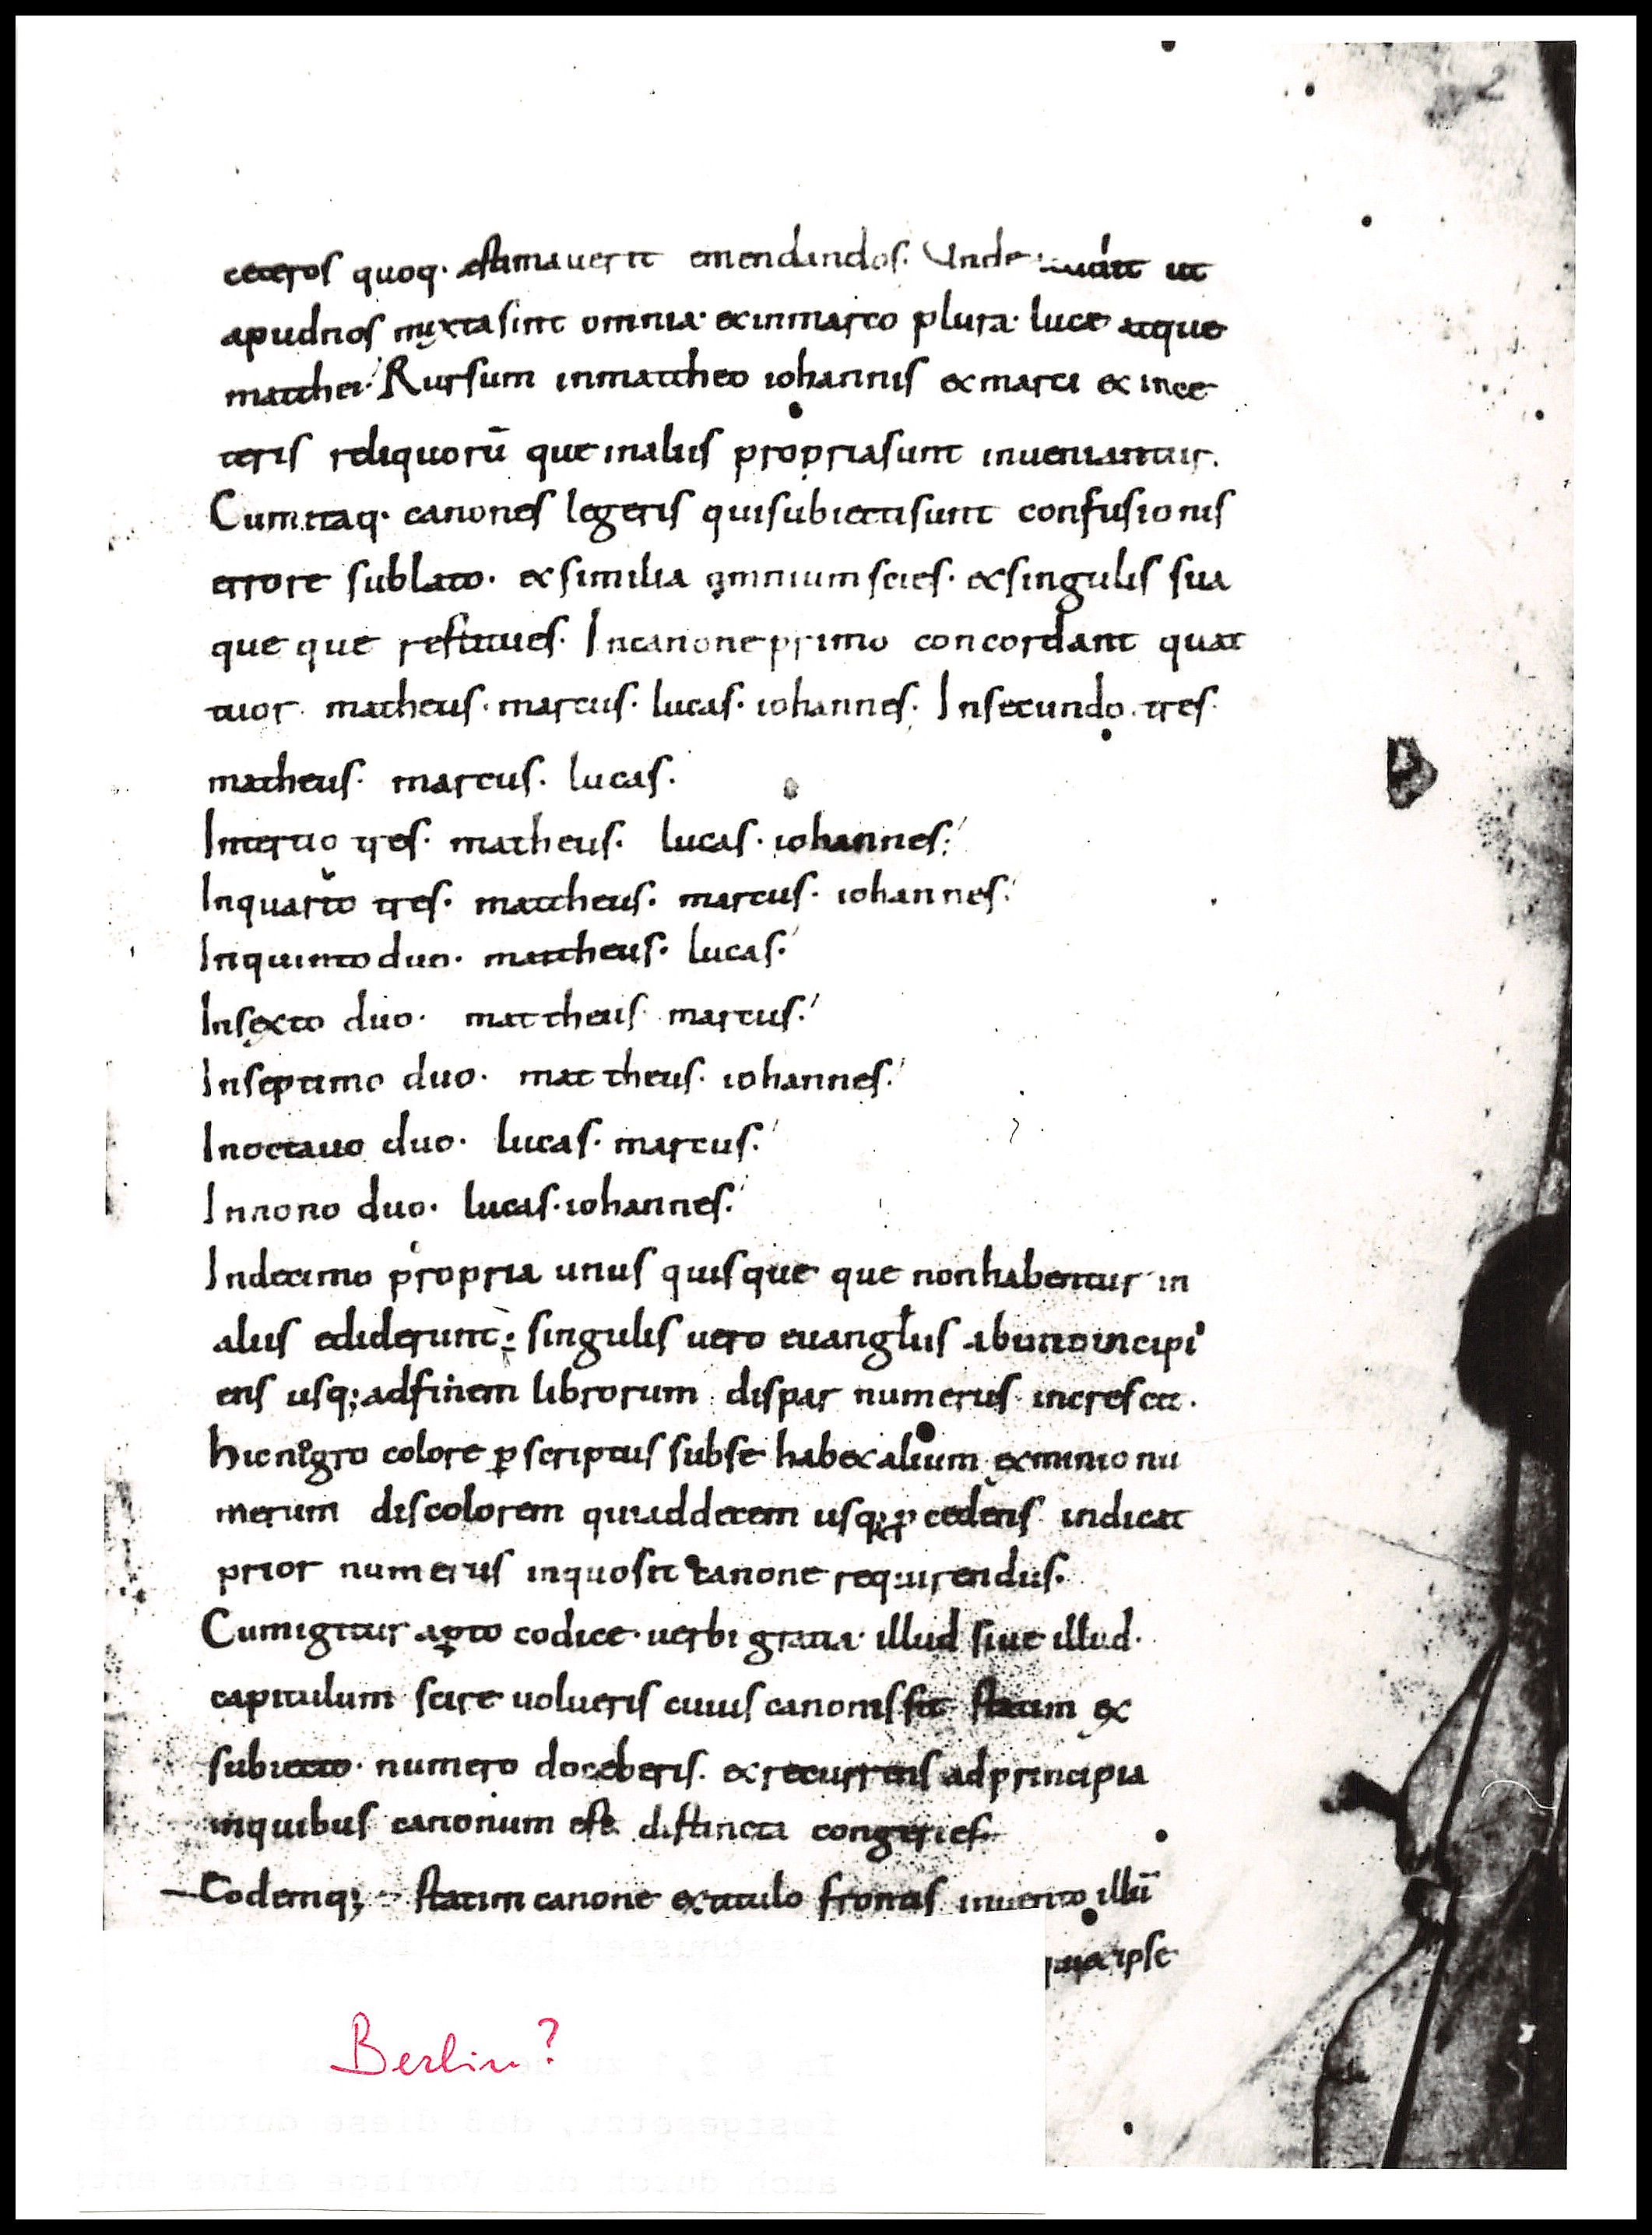 2
ceteros quoq· æstimauerit emendandos. Unde ut
apudnos mixta sint omnia· & inmarco plura· lucæ atque
matthei· Rursum inmattheo iohannis & marci & ince
teris reliquorū que inaliis propria sunt inueniantur.
Cum itaq· canones legeris qui subiecti sunt confusionis
errore sublato· & similia omnium scies· & singulis sua
que que restitues· In canone primo concordant quat
tuor· matheus· marcus· lucas· iohannes· In secundo· tres·
matheus· marcus· lucas·
In tertio tres· matheus· lucas· iohannes·
In quarto tres· mattheus· marcus· iohannes·
In quinto duo· mattheus· lucas·
In sexto duo· mattheus· marcus·
In septimo duo· mattheus· iohannes·
In octauo duo· lucas· marcus·
In nono duo· lucas· iohannes·
In decimo propria unus quisque que non habentur in
aliis ediderunt· singulis uero euangłiis ab uno incipi
ens usq; ad finem librorum dispar numerus increscit·
hic nigro colore ꝑscriptus sub se hab& alium ex minio nu
merum discolorem qui ad decem usq; ꝓcedens indicat
prior numerus in quo sit canone requirendus·
Cum igitur aꝑto codice· uerbi gratia· illud siue illud·
capitulum scire uolueris cuius canonis sit statim ex
subiecto· numero doceberis· & recurrens ad principia
in quibus canonum est distincta congeries·
Eodemq; statim canone & titulo frontis inuento illū
ipse
Berlin?